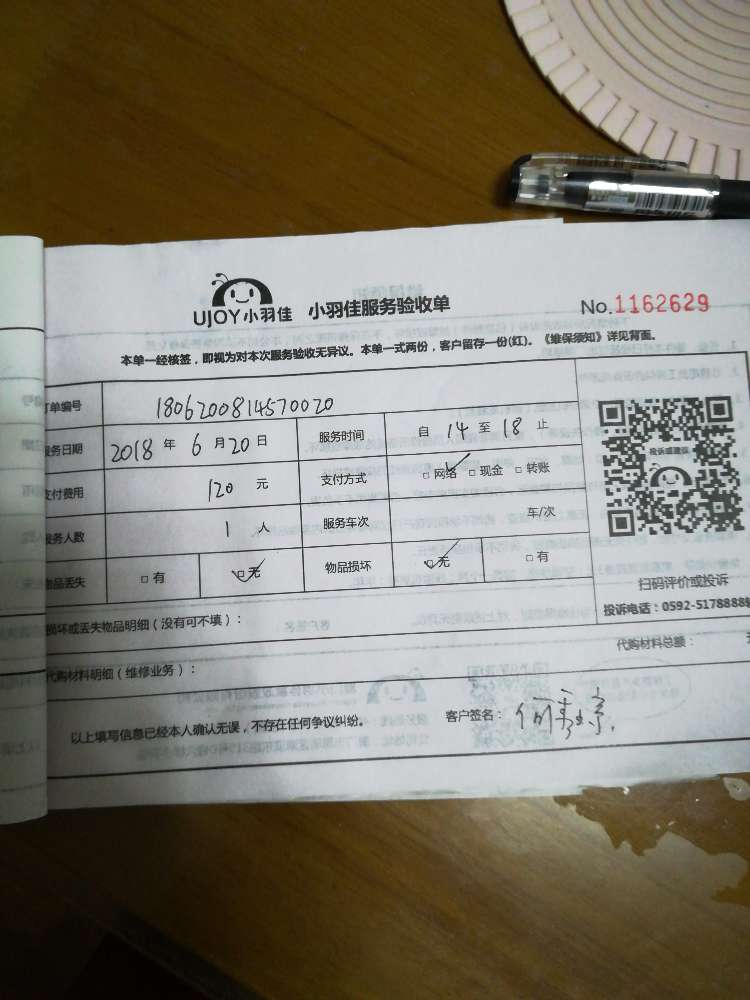 UJOY小羽佳 小羽佳服务验收单 No.1162629
本单一经核签，即视为对本次服务验收无异议。本单一式两份，客户留存一份(红)。《维保须知》详见背面。
订单编号 1806200814570020
服务日期 2018年6月20日 服务时间 自14至18止
支付费用 120元 支付方式 □网络 □现金 □转账
服务人数 1人 服务车次 车/次
物品丢失 □有 □无 物品损坏 □无 □有
投诉或建议
扫码评价或投诉
投诉电话：0592-5178888
损坏或丢失物品明细（没有可不填）：
代购材料明细（维修业务）： 代购材料总额：
以上填写信息已经本人确认无误，不存在任何争议纠纷。 客户签名：